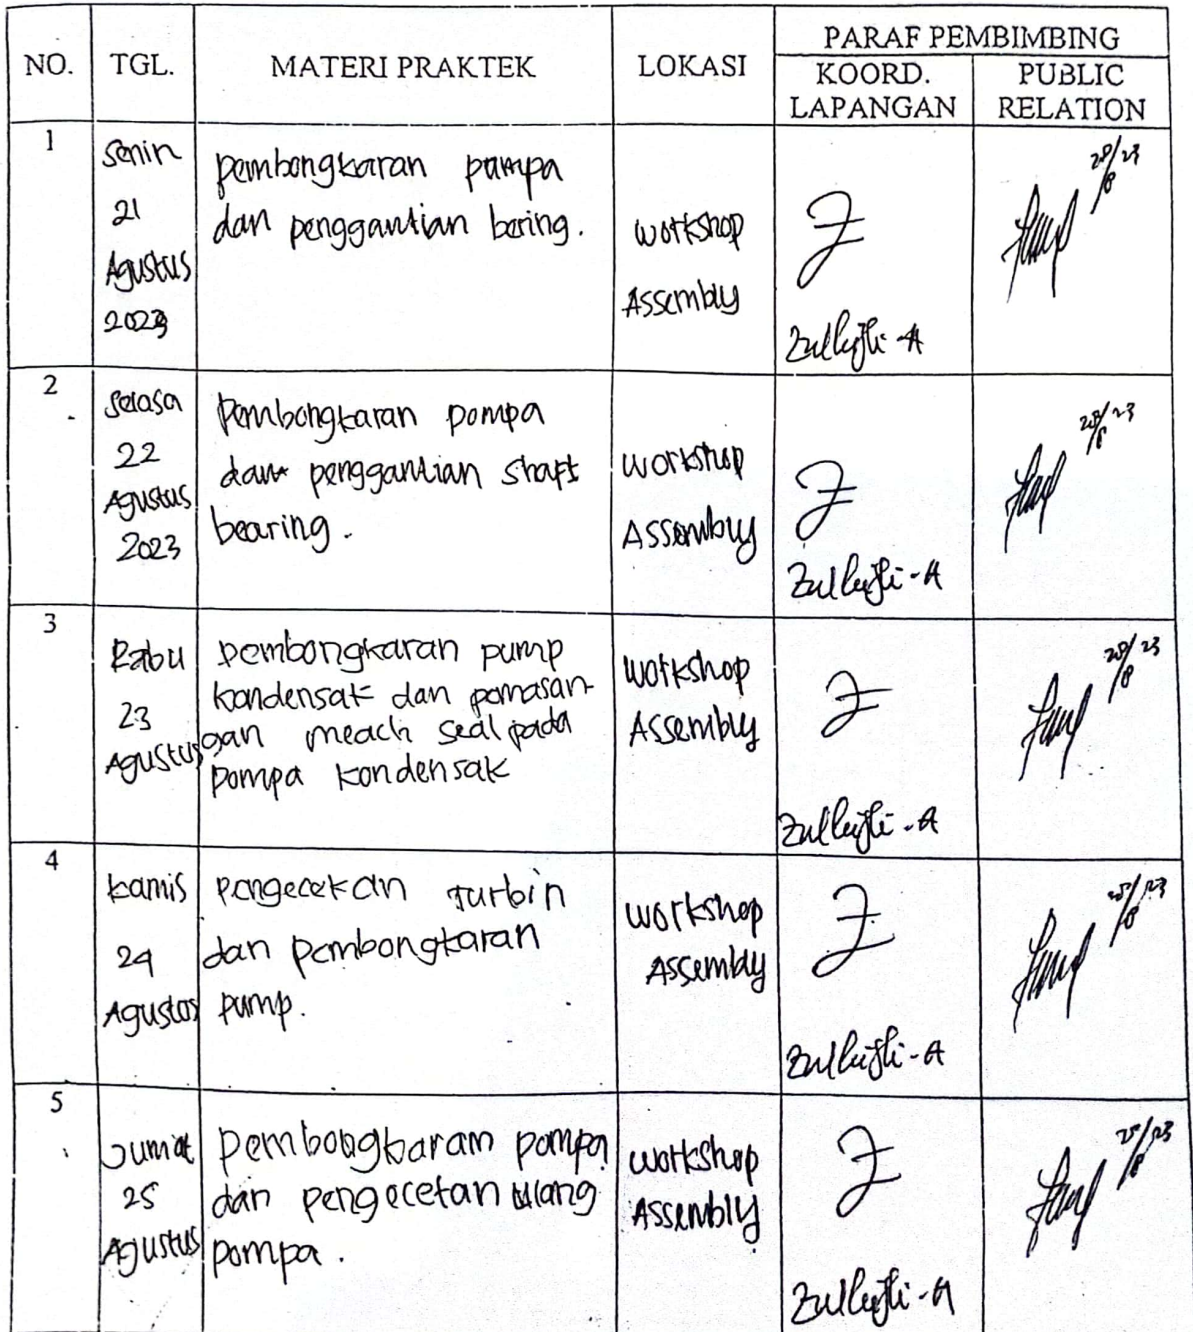 PARAF PEMBIMBING
NO. TGL. MATERI PRAKTEK LOKASI KOORD. LAPANGAN PUBLIC RELATION
1
Senin
21
Agustus
2023
pembongkaran pampa
dan penggantian bering.
workshop
Assembly
Zullkifli-A
28/8 23
2
Selasa
22
Agustus
2023
Pembongkaran pompa
dan penggantian shaft
bearing.
workshop
Assembly
Zullkifli-A
28/8 23
3
Rabu
23
Agustus
pembongkaran pump
kondensak dan pemasan-
gan meach seal pada
pompa kondensak
workshop
Assembly
Zullkifli-A
28/8 23
4
kamis
24
Agustos
pengecekan turbin
dan pembongkaran
pump.
workshop
Assembly
Zullkifli-A
28/8 23
5
Jumat
25
Agustus
pembongkaram pompa
dan pengecekan ulang
pompa.
workshop
Assembly
Zullkifli-A
28/8 23